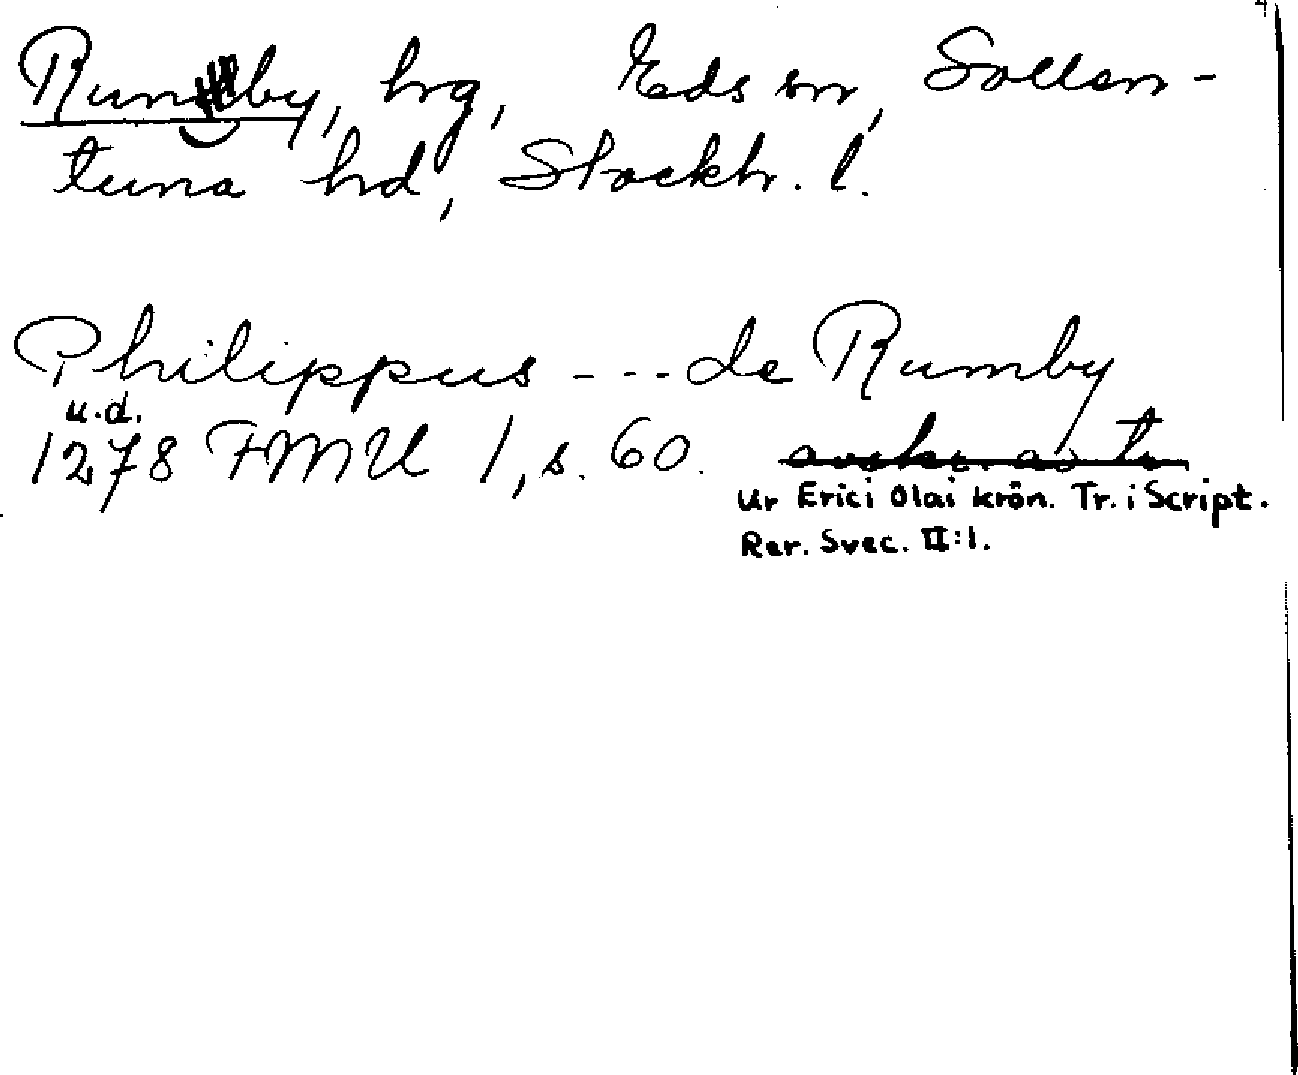 Runby, hrg, Eds sn, Sollen-
tuna hd, Stockh. l.
Philippus --- de Rumby
u.d.
1278 FMU 1, s. 60.
Ur Erici Olai krön. Tr. i Script.
Rer. Svec. II:1.